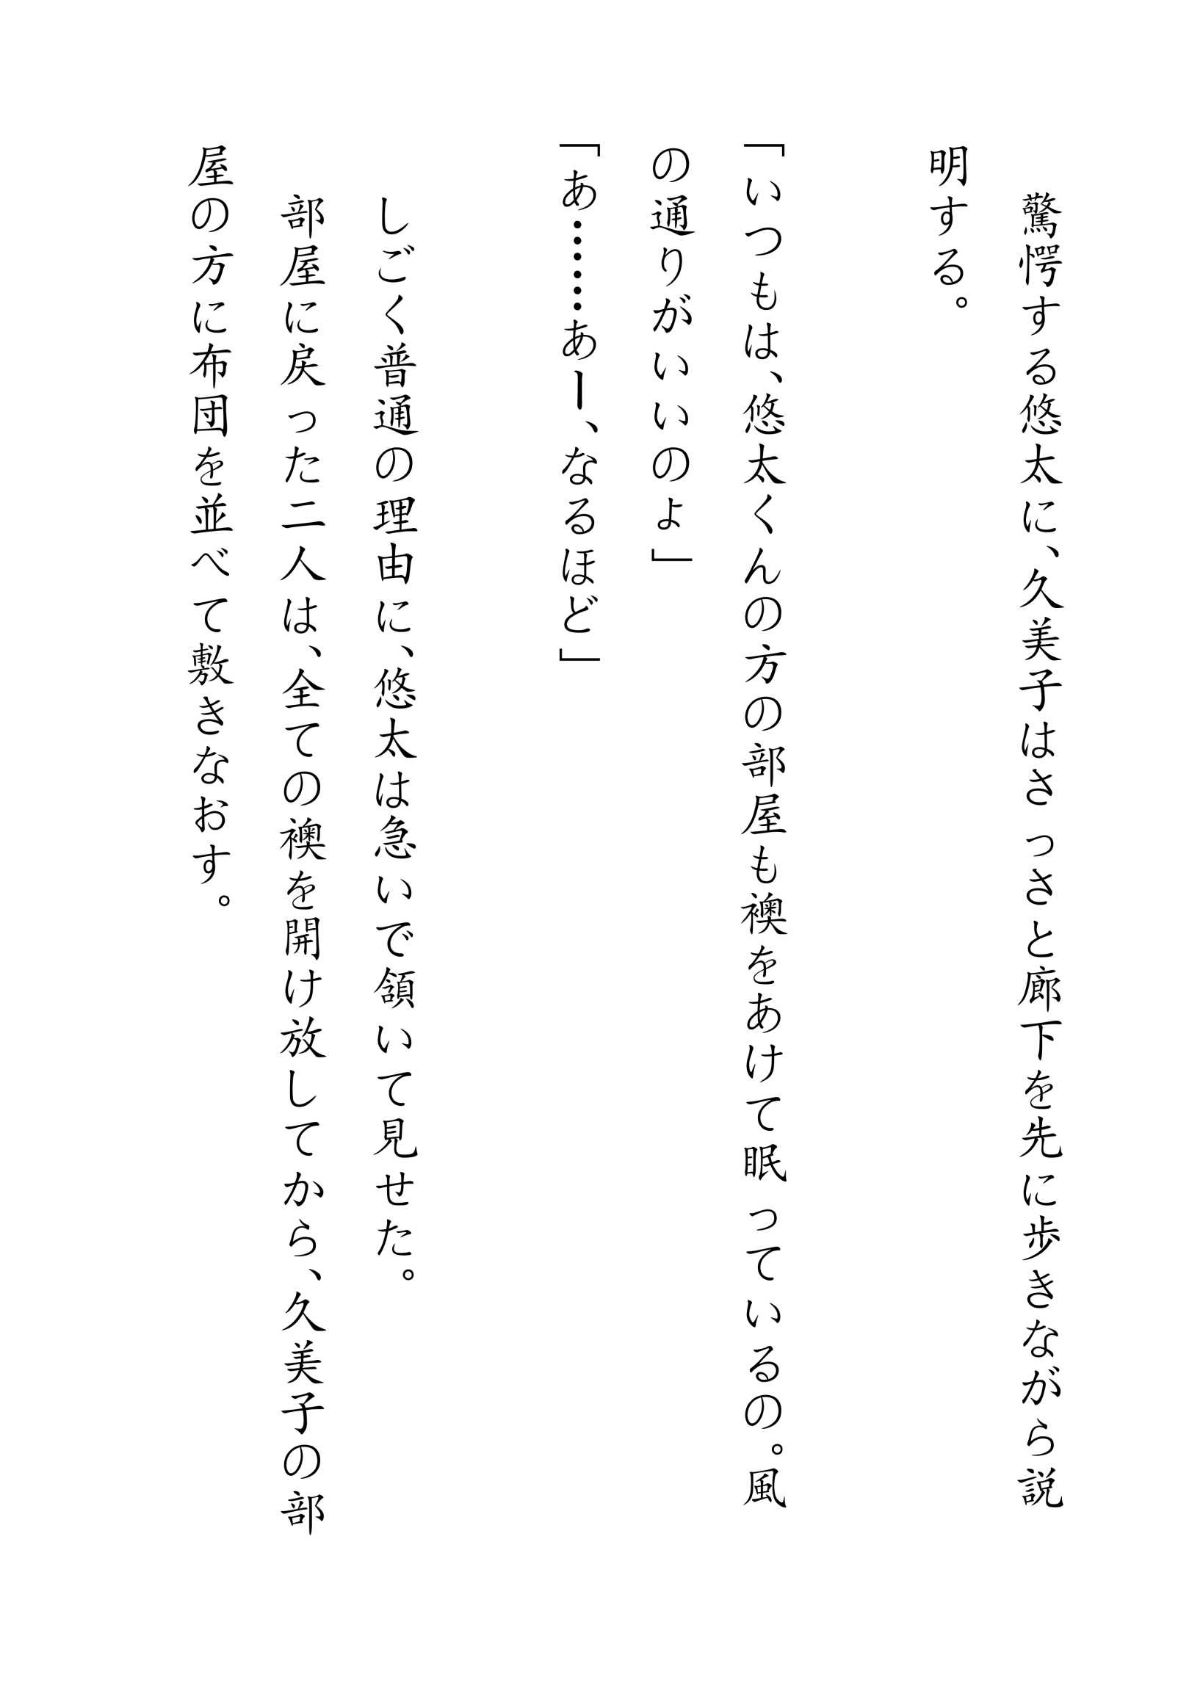 驚愕する悠太に、久美子はさっさと廊下を先に歩きながら説
明する。
「いつもは、悠太くんの方の部屋も襖をあけて眠っているの。風
の通りがいいのよ」
「あ……あー、なるほど」
しごく普通の理由に、悠太は急いで頷いて見せた。
部屋に戻った二人は、全ての襖を開け放してから、久美子の部
屋の方に布団を並べて敷きなおす。